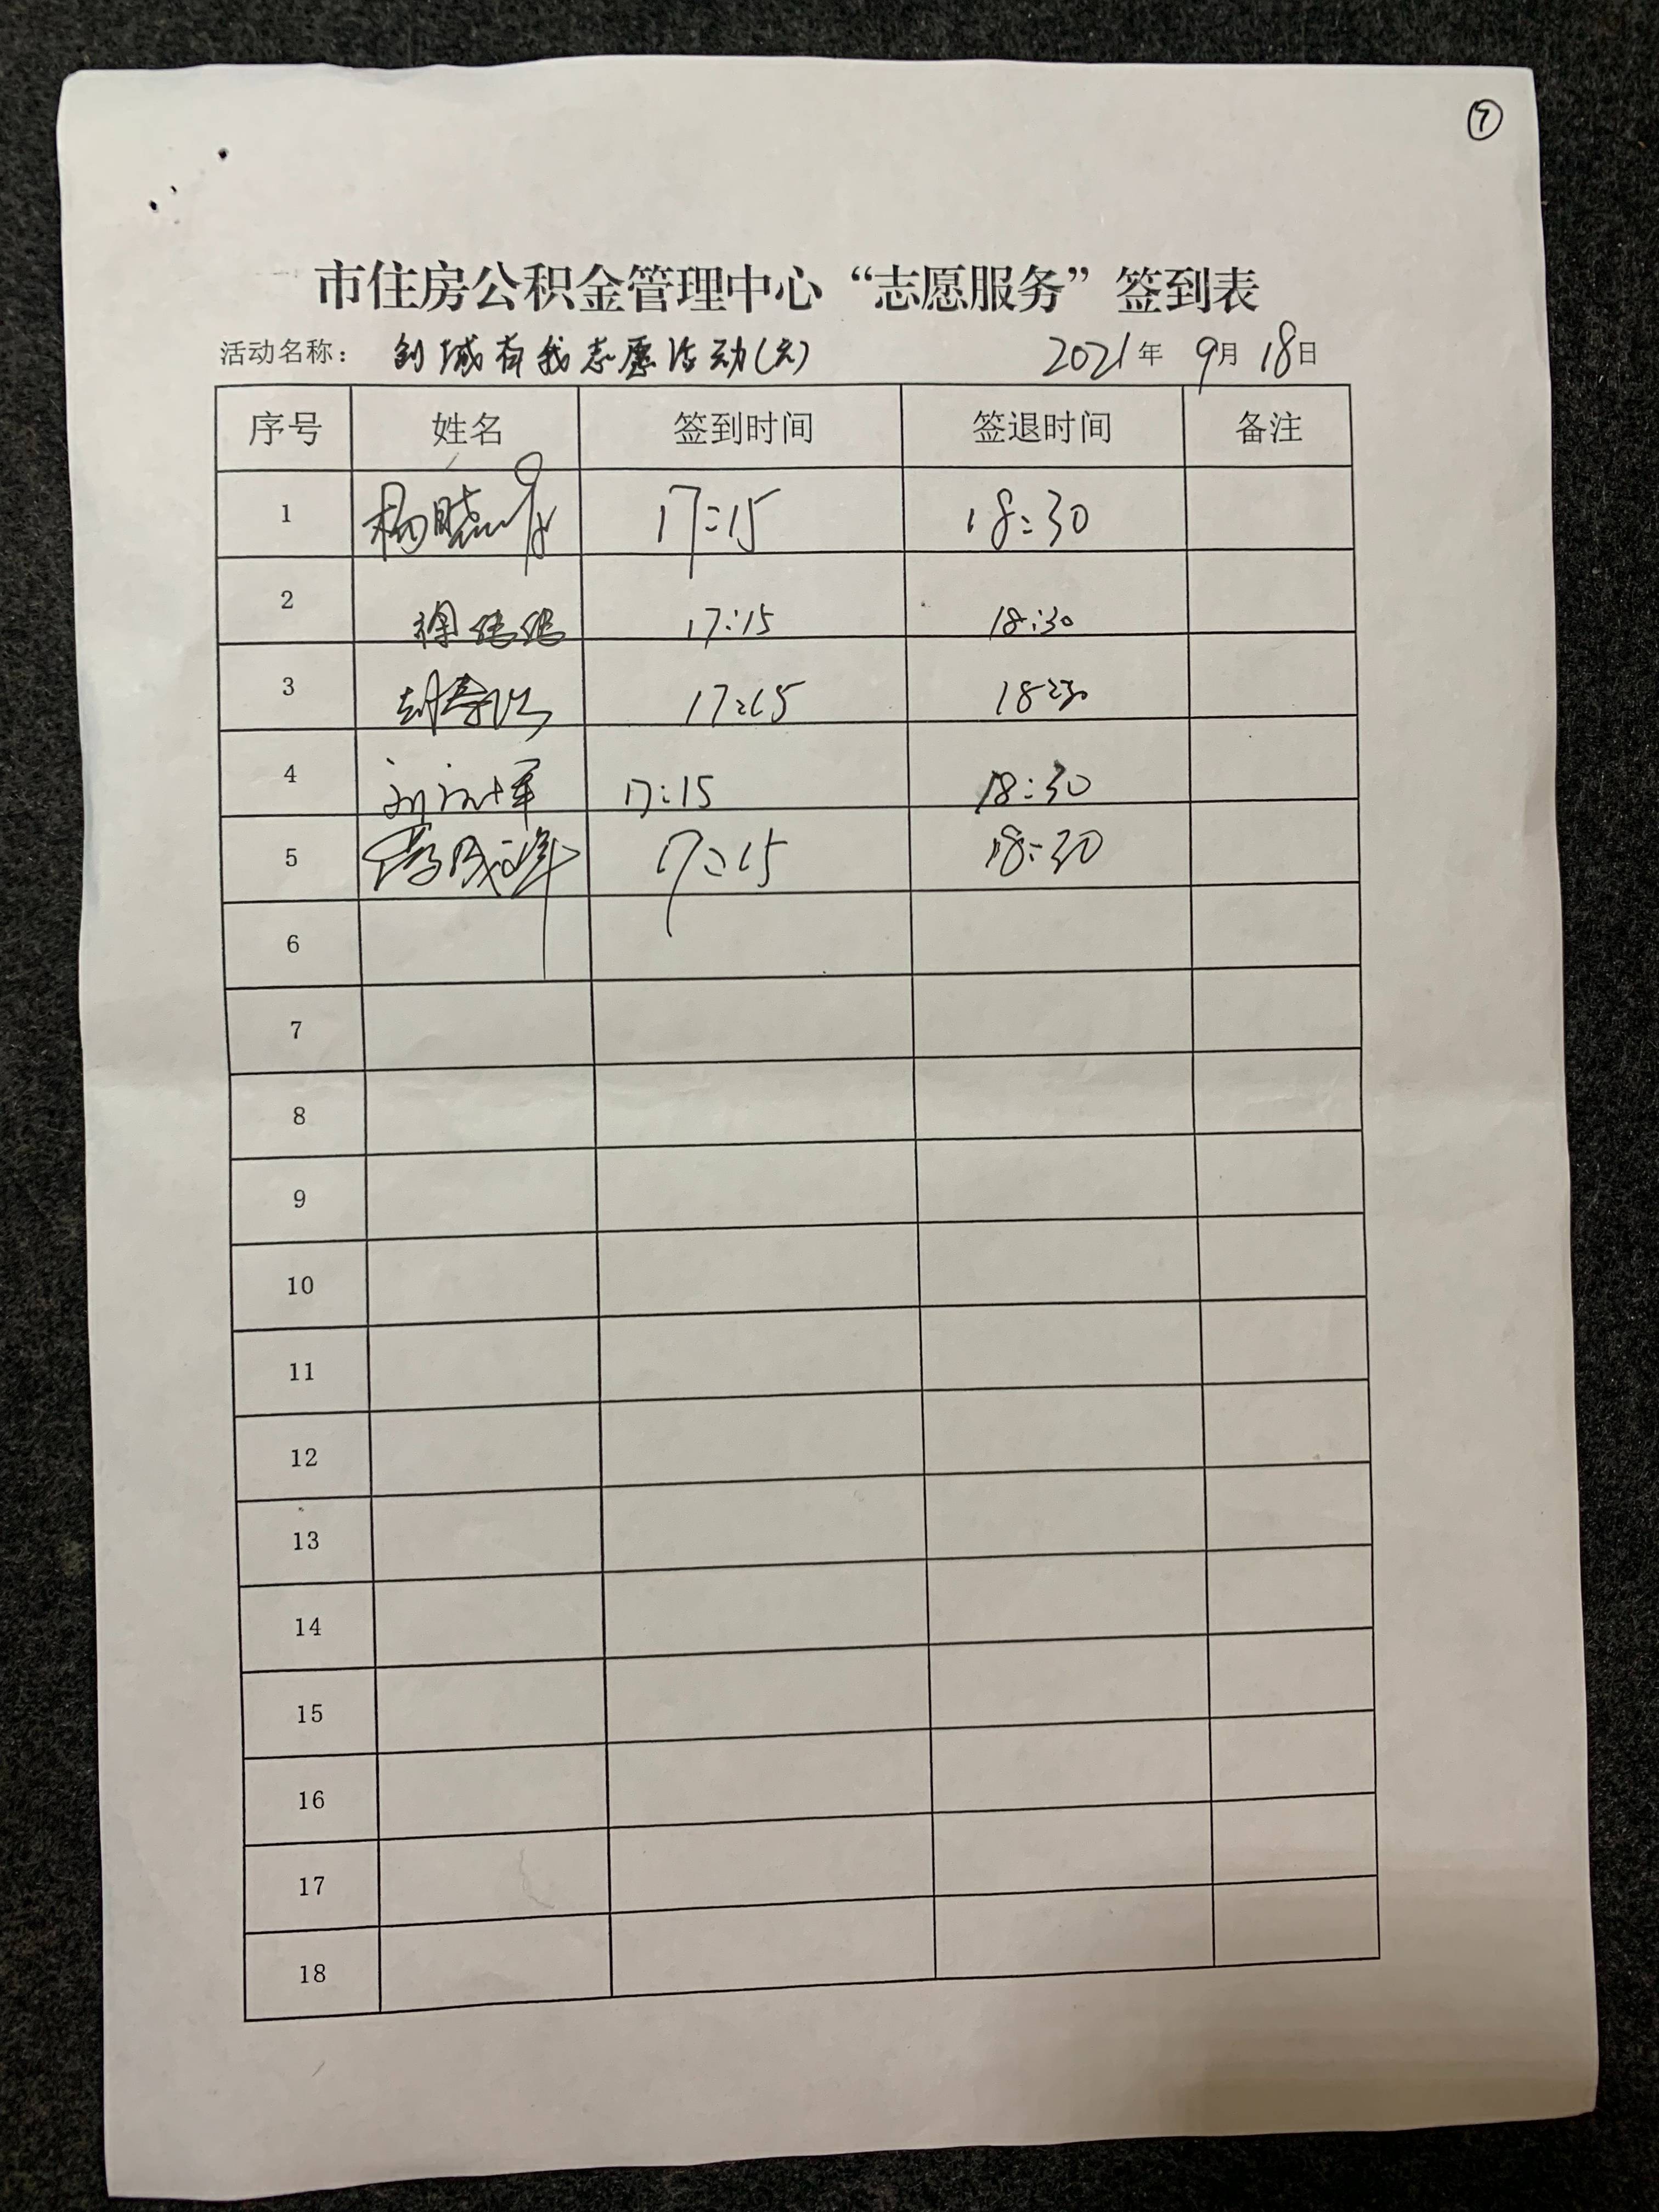 ⑦
市住房公积金管理中心“志愿服务”签到表
活动名称： 创城有我志愿活动 2021年 9月 18日
序号 姓名 签到时间 签退时间 备注
1 杨晓 17:15 18:30
2 徐 17:15 18:30
3 17:15 18:30
4 刘 军 17:15 18:30
5 17:15 18:30
6
7
8
9
10
11
12
13
14
15
16
17
18